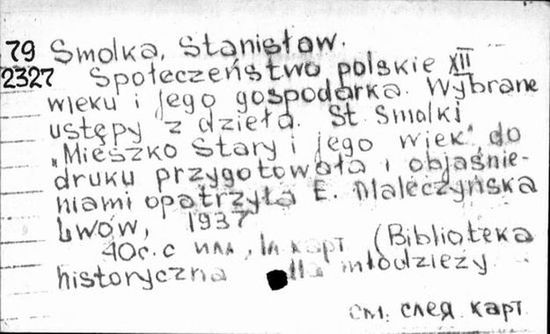 79 Smolka, Stanisław.
2327 Społeczeństwo polskie XII
wieku i jego gospodarka. Wybrane
ustępy z dzieła. St Smolki
"Mieszko Stary i jego wiek" do
druku przygotowała i objaśnie-
niami opatrzyła E. Maleczyńska
Lwów, 1937
40c. с илл, 1л карт (Biblioteka
historyczna dla młodzieży
см. след карт.